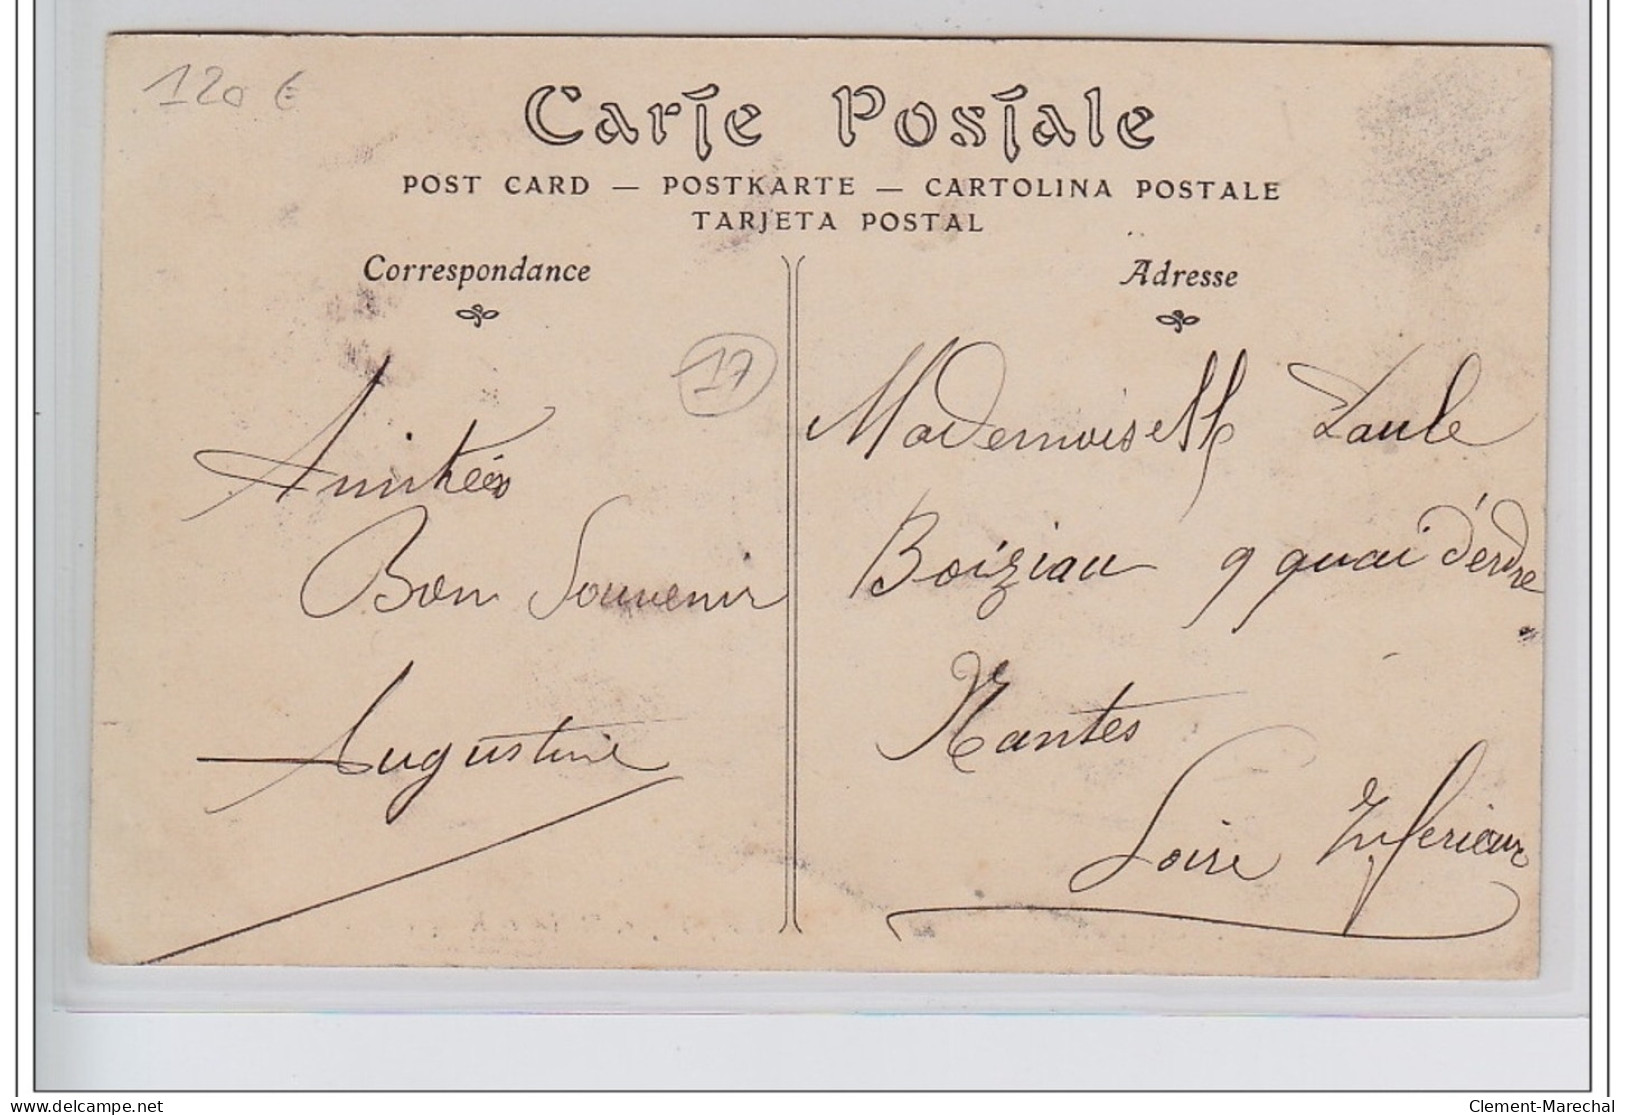 120 €
Carte Postale
POST CARD — POSTKARTE — CARTOLINA POSTALE
TARJETA POSTAL
Correspondance
17
Amitiés
Bon Souvenir
Augustine
Adresse
Mademoiselle Paule
Boiziau 9 quai d'erdre
Nantes
Loire Inferieur
delcampe.net
Clement-Marechal